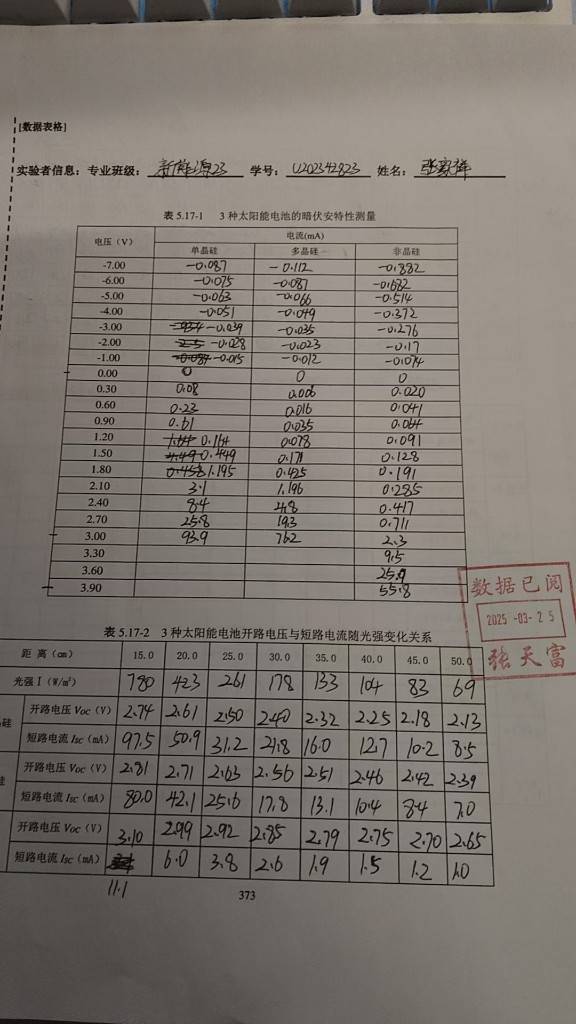 [数据表格]
实验者信息：专业班级： 新能源23 学号： U202342823 姓名： 张家祥
表 5.17-1 3 种太阳能电池的暗伏安特性测量
电压（V） 电流(mA)
单晶硅 多晶硅 非晶硅
-7.00 -0.087 -0.112 -0.882
-6.00 -0.075 -0.087 -0.682
-5.00 -0.063 -0.066 -0.514
-4.00 -0.051 -0.049 -0.372
-3.00 -0.039 -0.035 -0.276
-2.00 -0.028 -0.023 -0.17
-1.00 -0.015 -0.012 -0.074
0.00 0 0 0
0.30 0.08 0.006 0.020
0.60 0.23 0.016 0.041
0.90 0.61 0.035 0.064
1.20 1.64 0.164 0.078 0.091
1.50 4.49 0.449 0.171 0.128
1.80 0.458 1.195 0.425 0.191
2.10 3.1 1.196 0.285
2.40 8.4 4.8 0.417
2.70 25.8 19.3 0.711
3.00 93.9 76.2 2.3
3.30 9.5
3.60 25.9
3.90 55.8
数据已阅
2025-03-25
张天富
表 5.17-2 3 种太阳能电池开路电压与短路电流随光强变化关系
距 离（cm） 15.0 20.0 25.0 30.0 35.0 40.0 45.0 50.0
光强 I（W/m²） 780 423 261 178 133 104 83 69
晶硅 开路电压 VOC（V） 2.74 2.61 2.50 2.40 2.32 2.25 2.18 2.13
短路电流 ISC（mA） 97.5 50.9 31.2 21.8 16.0 12.7 10.2 8.5
硅 开路电压 VOC（V） 2.81 2.71 2.63 2.56 2.51 2.46 2.42 2.39
短路电流 ISC（mA） 80.0 42.1 25.6 17.8 13.1 10.4 8.4 7.0
开路电压 VOC（V） 3.10 2.99 2.92 2.85 2.79 2.75 2.70 2.65
短路电流 ISC（mA） 6.0 3.8 2.6 1.9 1.5 1.2 1.0
11.1
373